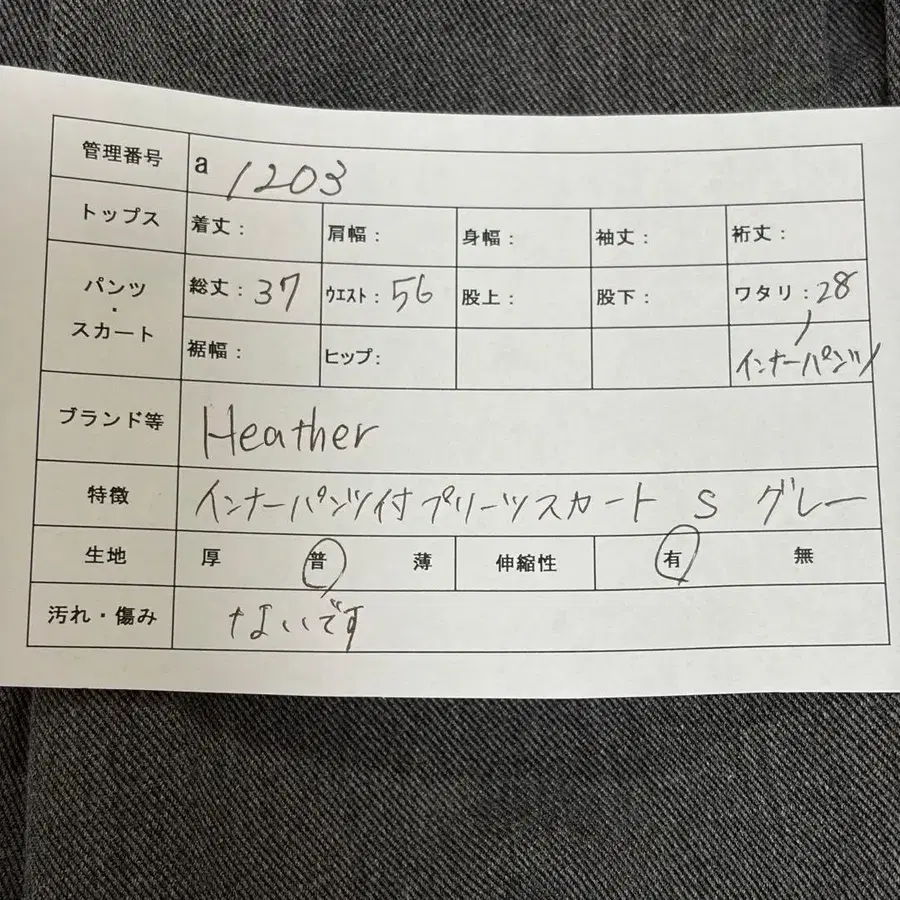 管理番号 a 1203
トップス 着丈： 肩幅： 身幅： 袖丈： 裄丈：
パンツ・スカート 総丈：37 ウエスト：56 股上： 股下： ワタリ：28
裾幅： ヒップ： インナーパンツ
ブランド等 Heather
特徴 インナーパンツ付プリーツスカート S グレー
生地 厚 普 薄 伸縮性 有 無
汚れ・傷み ないです